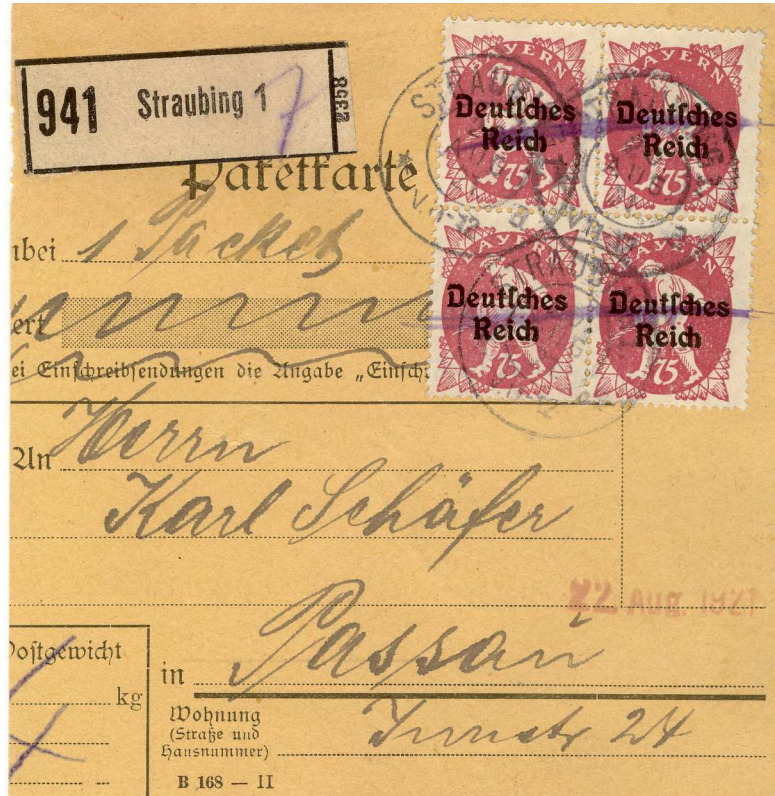 941 Straubing 1 7 2358
BAYERN BAYERN
Deutsches Reich Deutsches Reich
75 75
BAYERN BAYERN
Deutsches Reich Deutsches Reich
75 75
Paketkarte
nbei 1 Packet
ert
ei Einschreibsendungen die Angabe „Einsch
An Herrn
Karl Schäfer
22. AUG. 1921
Postgewicht
kg
in Passau
Wohnung
(Straße und
Hausnummer)
Innstr 24
B 168 — II